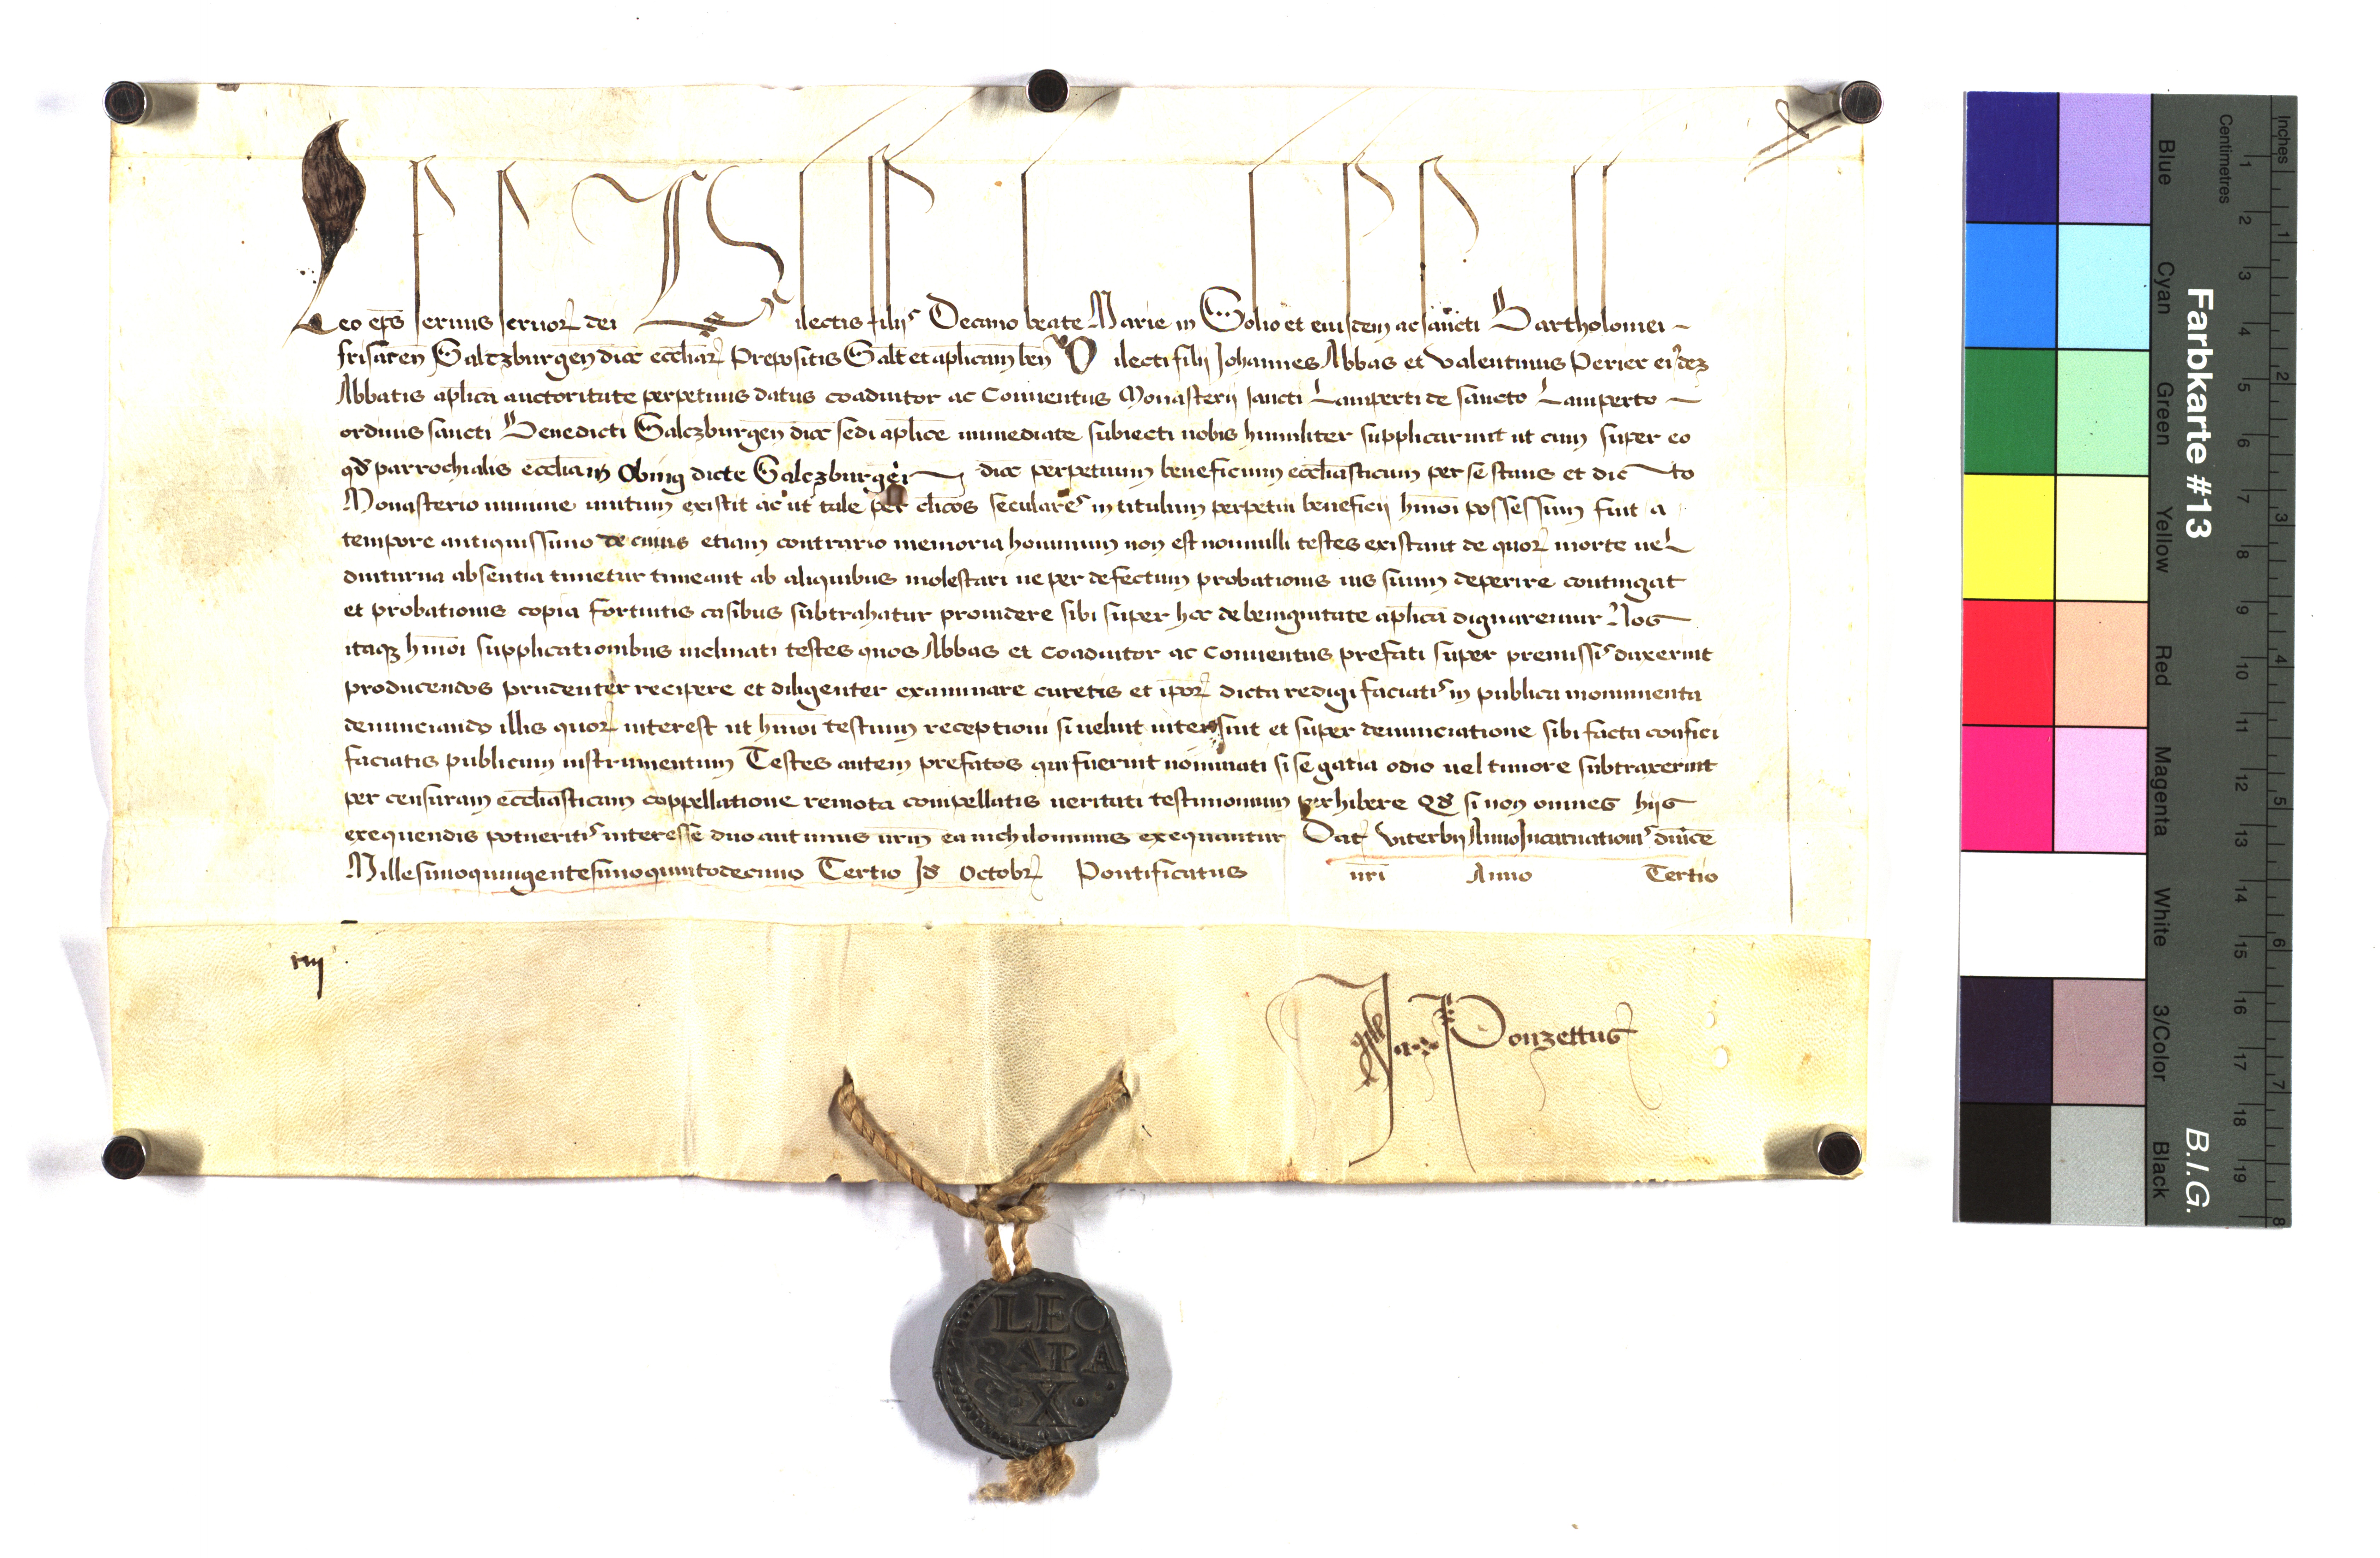 Leo ep̄s servus servor⁊ dei Dilectis filijs Decano beate Marie in Solio et eiusdem ac sancti Bartholomei
frisacen̄ Salczburgen̄ dioc̄ eccl̄iar⁊ Prepositis Salt̄ et ap̄licam ben̄ Dilecti filij Johannes Abbas et Valentinus Perier eiusdez
Abbatis ap̄lica auctoritate perpetuus datus coadiutor ac Conuentus Monasterij sancti Lamperti de sancto Lamperto
ordinis sancti Benedicti Salczburgen̄ dioc̄ sedi ap̄lice immediate subiecti nobis humiliter supplicarunt ut cum super eo
qd parrochialis eccl̄ia in Obing dicte Salczburgen̄ dioc̄ perpetuum beneficium eccl̄iasticum per se stans et dicto
Monasterio minime unitum existit ac ut tale per cl̄icos seculares in titulum perpetui beneficij hm̄oi possessum fuit a
tempore antiquissimo de cuius etiam contrario memoria hominum non est nonnulli testes existant de quor⁊ morte uel
diuturna absentia timetur timeant ab aliquibus molestari ne per defectum probationis ius suum deperire contingat
et probationis copia fortuitis casibus subtrahatur prouidere sibi super hoc de benignitate ap̄lica dignaremur Nos
itaqz hm̄oi supplicationibus inclinati testes quos Abbas et Coadiutor ac Conuentus prefati super premissis duxerint
producendos prudenter recipere et diligenter examinare curetis et ip̄or⁊ dicta redigi faciatis in publica monimenta
denunciando illis quor⁊ interest ut hm̄oi testium receptioni si uelint intersint et super denunciatione sibi facta confici
faciatis publicum instrumentum Testes autem prefatos qui fuerint nominati si se gatia odio uel timore subtraxerint
per censuram eccl̄iasticam coppellatione remota compellatis ueritati testimonium perhibere Qd si non omnes hijs
exequendis potueritis interesse duo aut unus ur̄m ea nichilominus exequantur Dat⁊ Viterbij Anno Incarnationis dn̄ice
Millesimoquingentesimoquintodecimo Tertio Id Octobr⁊ Pontificatus nr̄i Anno Tertio
Ja. Ponzettus
LEO
PAPA
X
Farbkarte #13
B.I.G.
Inches
Centimetres
1 2 3 4 5 6 7 8 9 10 11 12 13 14 15 16 17 18 19
1 2 3 4 5 6 7 8
Blue Cyan Green Yellow Red Magenta White 3/Color Black